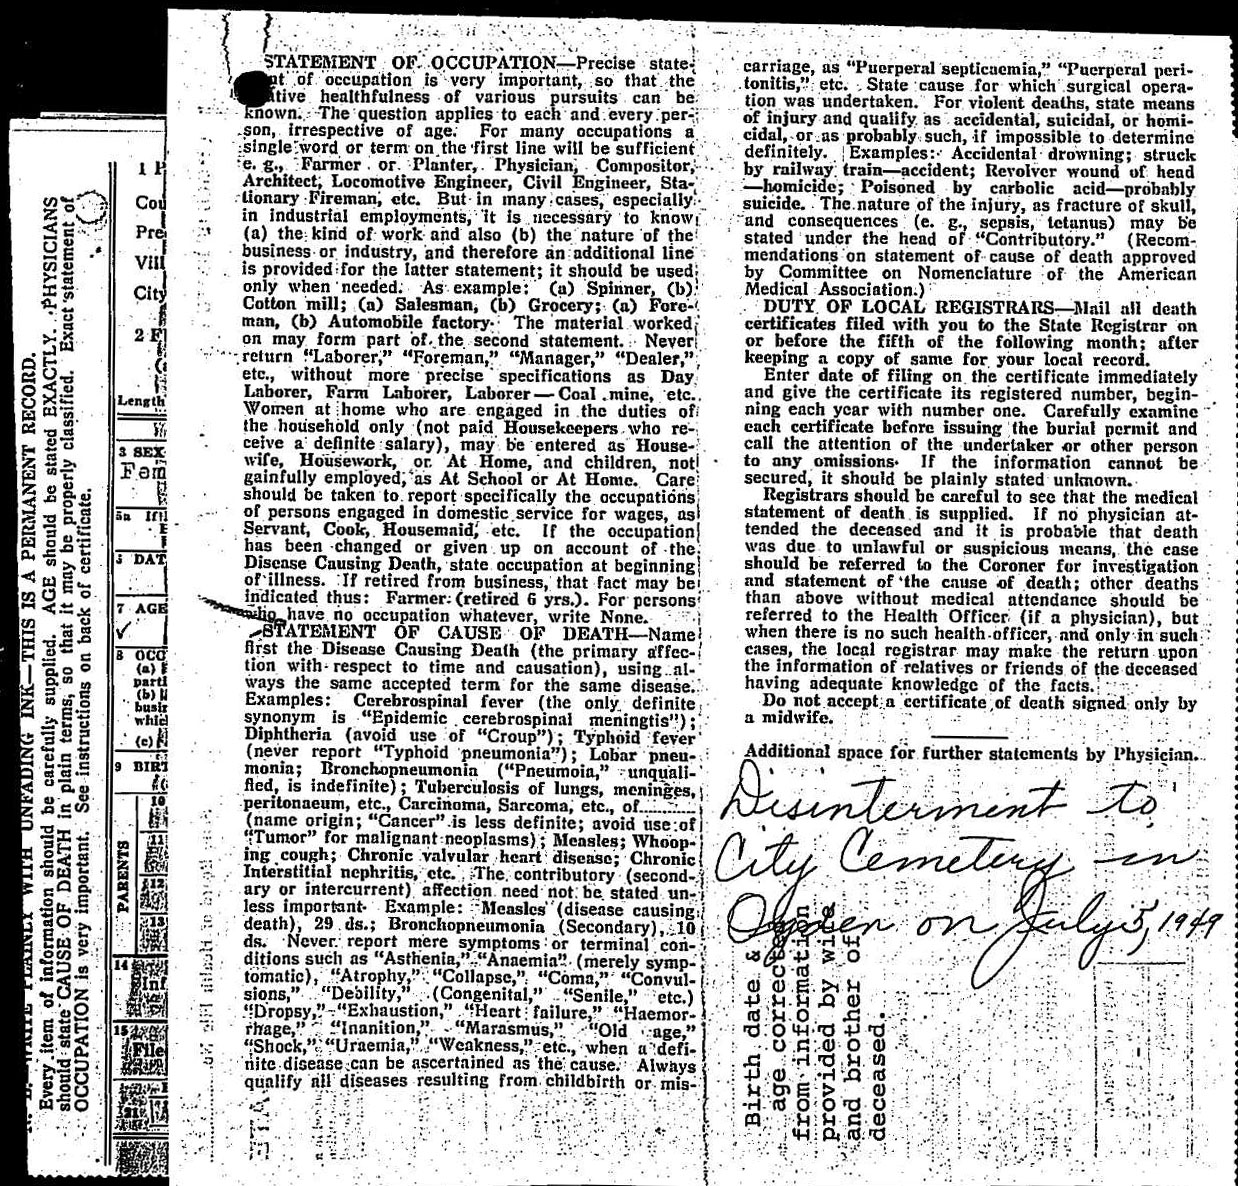 N. B. WRITE PLAINLY WITH UNFADING INK—THIS IS A PERMANENT RECORD.
Every item of information should be carefully supplied. AGE should be stated EXACTLY. PHYSICIANS
should state CAUSE OF DEATH in plain terms, so that it may be properly classified. Exact statement of
OCCUPATION is very important. See instructions on back of certificate.
1 P
Cou
Pre
Vill
City
2 F
Length
3 SEX
Fem
5a If
5 DAT
7 AGE
✓
8 OCC
(a)
parti
(b)
busin
whicl
(c)
9 BIRT
10
11
12
13
PARENTS
14
Inf
15
File
21
STATEMENT OF OCCUPATION—Precise state-
of occupation is very important, so that the
healthfulness of various pursuits can be
known. The question applies to each and every per-
son, irrespective of age. For many occupations a
single word or term on the first line will be sufficient
e. g., Farmer or Planter, Physician, Compositor,
Architect, Locomotive Engineer, Civil Engineer, Sta-
tionary Fireman, etc. But in many cases, especially
in industrial employments, it is necessary to know
(a) the kind of work and also (b) the nature of the
business or industry, and therefore an additional line
is provided for the latter statement; it should be used
only when needed. As example: (a) Spinner, (b)
Cotton mill; (a) Salesman, (b) Grocery; (a) Fore-
man, (b) Automobile factory. The material worked
on may form part of the second statement. Never
return "Laborer," "Foreman," "Manager," "Dealer,"
etc., without more precise specifications as Day
Laborer, Farm Laborer, Laborer—Coal mine, etc.
Women at home who are engaged in the duties of
the household only (not paid Housekeepers who re-
ceive a definite salary), may be entered as House-
wife, Housework, or At Home, and children, not
gainfully employed, as At School or At Home. Care
should be taken to report specifically the occupations
of persons engaged in domestic service for wages, as
Servant, Cook, Housemaid, etc. If the occupation
has been changed or given up on account of the
Disease Causing Death, state occupation at beginning
of illness. If retired from business, that fact may be
indicated thus: Farmer (retired 6 yrs.). For persons
who have no occupation whatever, write None.
STATEMENT OF CAUSE OF DEATH—Name
first the Disease Causing Death (the primary affec-
tion with respect to time and causation), using al-
ways the same accepted term for the same disease.
Examples: Cerebrospinal fever (the only definite
synonym is "Epidemic cerebrospinal meningtis");
Diphtheria (avoid use of "Croup"); Typhoid fever
(never report "Typhoid pneumonia"); Lobar pneu-
monia; Bronchopneumonia ("Pneumoia," unquali-
fied, is indefinite); Tuberculosis of lungs, meninges,
peritonaeum, etc., Carcinoma, Sarcoma, etc., of..........
(name origin; "Cancer" is less definite; avoid use of
"Tumor" for malignant neoplasms); Measles; Whoop-
ing cough; Chronic valvular heart disease; Chronic
Interstitial nephritis, etc. The contributory (second-
ary or intercurrent) affection need not be stated un-
less important. Example: Measles (disease causing
death), 29 ds.; Bronchopneumonia (Secondary), 10
ds. Never report mere symptoms or terminal con-
ditions such as "Asthenia," "Anaemia" (merely symp-
tomatic), "Atrophy," "Collapse," "Coma," "Convul-
sions," "Debility," (Congenital," "Senile," etc.)
"Dropsy," "Exhaustion," "Heart failure," "Haemor-
rhage," "Inanition," "Marasmus," "Old age,"
"Shock," "Uraemia," "Weakness," etc., when a defi-
nite disease can be ascertained as the cause. Always
qualify all diseases resulting from childbirth or mis-
carriage, as "Puerperal septicaemia," "Puerperal peri-
tonitis," etc. State cause for which surgical opera-
tion was undertaken. For violent deaths, state means
of injury and qualify as accidental, suicidal, or homi-
cidal, or as probably such, if impossible to determine
definitely. Examples: Accidental drowning; struck
by railway train—accident; Revolver wound of head
—homicide; Poisoned by carbolic acid—probably
suicide. The nature of the injury, as fracture of skull,
and consequences (e. g., sepsis, tetanus) may be
stated under the head of "Contributory." (Recom-
mendations on statement of cause of death approved
by Committee on Nomenclature of the American
Medical Association.)
DUTY OF LOCAL REGISTRARS—Mail all death
certificates filed with you to the State Registrar on
or before the fifth of the following month; after
keeping a copy of same for your local record.
Enter date of filing on the certificate immediately
and give the certificate its registered number, begin-
ning each year with number one. Carefully examine
each certificate before issuing the burial permit and
call the attention of the undertaker or other person
to any omissions. If the information cannot be
secured, it should be plainly stated unknown.
Registrars should be careful to see that the medical
statement of death is supplied. If no physician at-
tended the deceased and it is probable that death
was due to unlawful or suspicious means, the case
should be referred to the Coroner for investigation
and statement of the cause of death; other deaths
than above without medical attendance should be
referred to the Health Officer (if a physician), but
when there is no such health officer, and only in such
cases, the local registrar may make the return upon
the information of relatives or friends of the deceased
having adequate knowledge of the facts.
Do not accept a certificate of death signed only by
a midwife.
Additional space for further statements by Physician.
Disinterment to
City Cemetery in
Ogden on July 5, 1949
Birth date &
age corrected
from information
provided by wife
and brother of
deceased.